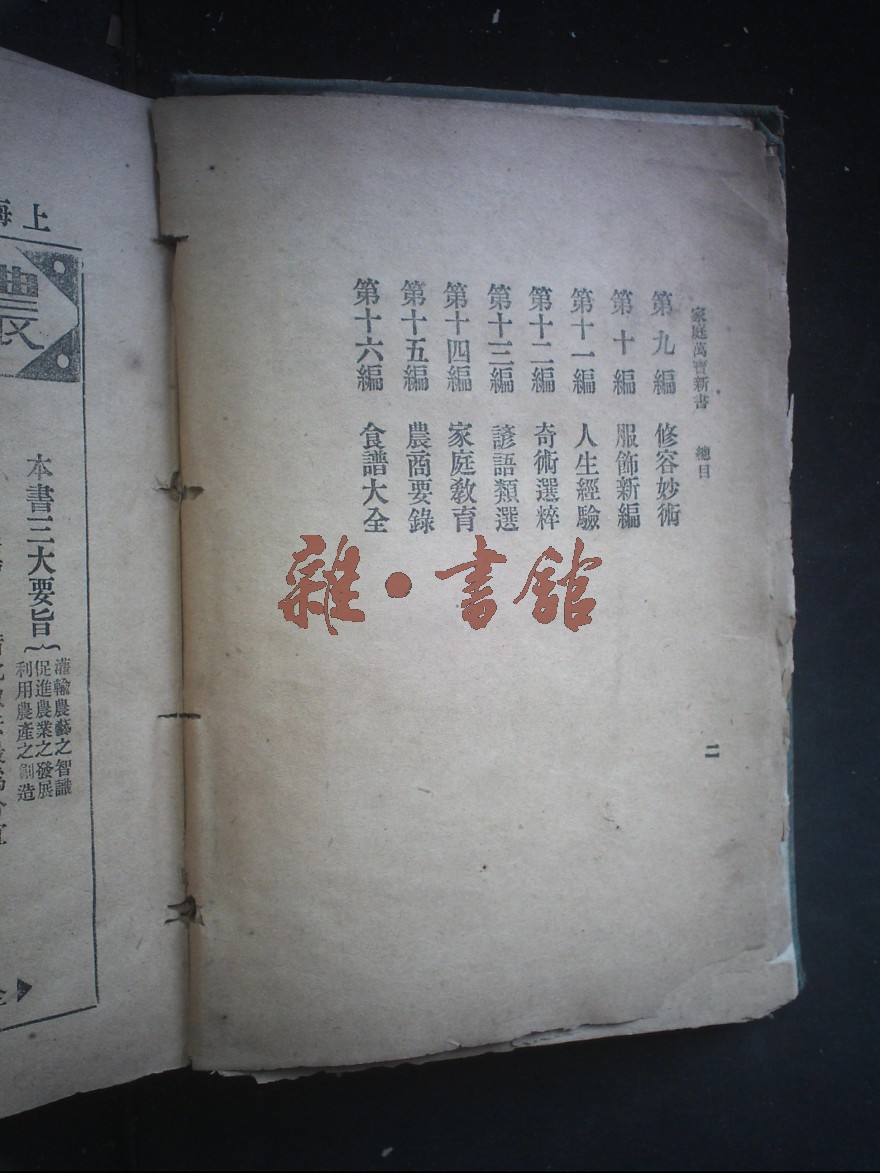 家庭萬寶新書 總目
第九編 修容妙術
第十編 服飾新編
第十一編 人生經驗
第十二編 奇術選粹
第十三編 諺語類選
第十四編 家庭教育
第十五編 農商要錄
第十六編 食譜大全
二
雜·書館
上海
農
本書三大要旨
灌輸農藝之智識
促進農業之發展
利用農產之創造